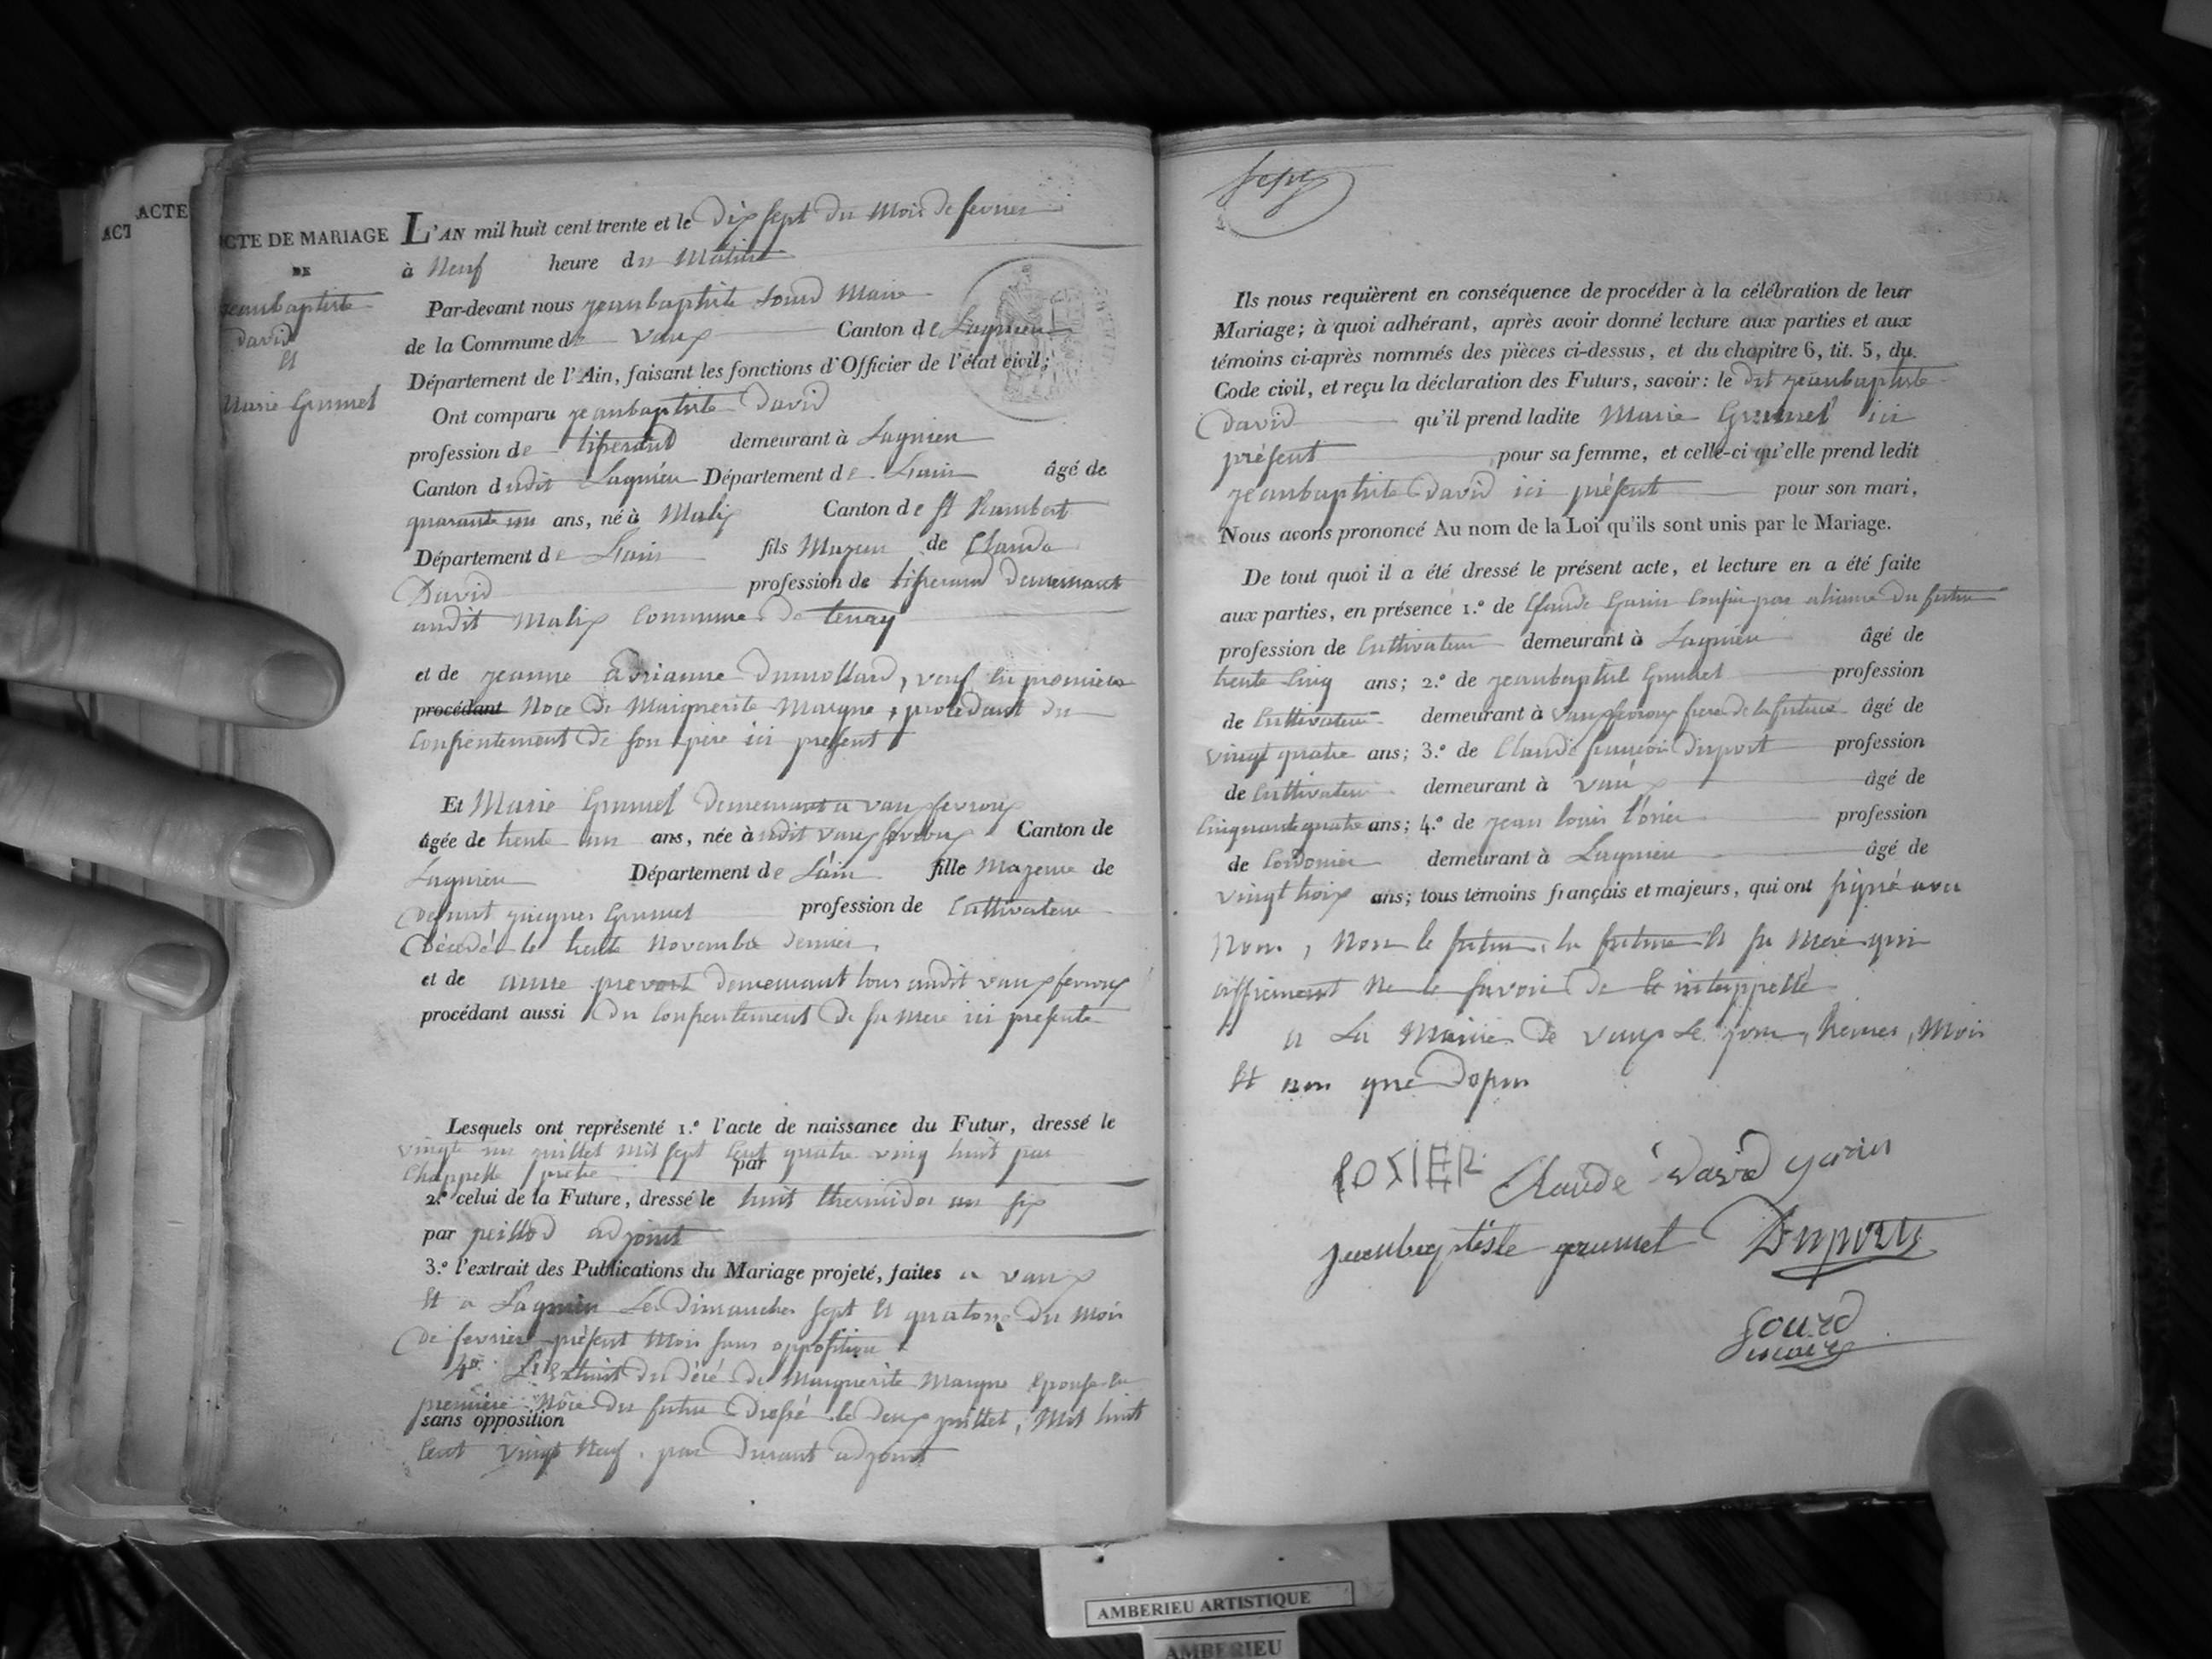 ACTE
ACT
CTE DE MARIAGE
DE
jeanbaptiste
David
Et
Marie Grumel
L'AN mil huit cent trente et le dix sept du mois de fevrier
à Neuf heure du Matin
Par-devant nous jeanbaptiste Gourd Maire
de la Commune de vaux Canton de Lagnieu
Département de l'Ain, faisant les fonctions d'Officier de l'état civil;
Ont comparu jeanbaptiste David
profession de tisserand demeurant à Lagnieu
Canton dudit Lagnieu Département de Lain âgé de
quarante un ans, né à Malix Canton de st Rambert
Département de Lain fils Majeur de Claude
David profession de tisserand demeurant
audit Malix Commune de tenay
et de jeanne adrianne dumollard, veuf en premiere
procédant Noce de Marguerite Margne, procedant du
Consentement de son pere ici present
Et Marie Grumel demeurant a vauxfevroux
âgée de trente un ans, née audit vauxfevroux Canton de
Lagnieu Département de Lain fille Majeure de
defunt jacques Grumel profession de Cultivateur
Décédé le trente Novembre dernier
et de anne prevost demeurant tous audit vauxfevroux
procédant aussi du Consentement de sa mere ici presente
Lesquels ont représenté 1.º l'acte de naissance du Futur, dressé le
vingt un juillet mil sept Cent quatre ving huit par
Chappelle pretre par
2.º celui de la Future, dressé le huit thermidor an six
par peillod adjoint
3.º l'extrait des Publications du Mariage projeté, faites a vaux
Et a Lagnieu Les Dimanches sept Et quatorze du mois
de fevrier présent Mois sans opposition
4º. L'Extrait du décé de Marguerite Margne Epouse En
premiere Noce du futur Dressé le deux juillet, Mil huit
sans opposition
Cent vingt Neuf. par Durant adjoint
Ils nous requièrent en conséquence de procéder à la célébration de leur
Mariage; à quoi adhérant, après avoir donné lecture aux parties et aux
témoins ci-après nommés des pièces ci-dessus, et du chapitre 6, tit. 5, du
Code civil, et reçu la déclaration des Futurs, savoir: le dit jeanbaptiste
David qu'il prend ladite Marie Grumel ici
présent pour sa femme, et celle-ci qu'elle prend ledit
jeanbaptiste David ici présent pour son mari,
Nous avons prononcé Au nom de la Loi qu'ils sont unis par le Mariage.
De tout quoi il a été dressé le présent acte, et lecture en a été faite
aux parties, en présence 1.º de Claude Garin Cousin par aliance du futur
profession de Cultivateur demeurant à Lagnieu âgé de
trente Cinq ans; 2.º de jeanbaptiste Grumel profession
de Cultivateur demeurant à vauxfevroux frere de la future âgé de
vingt quatre ans; 3.º de Claude francois Duport profession
de Cultivateur demeurant à vaux âgé de
Cinquante quatre ans; 4.º de jean louis l'osier profession
de Cordonier demeurant à Lagnieu âgé de
vingt trois ans; tous témoins français et majeurs, qui ont signé avec
Nous, Non le futur, la future Et sa Mere qui
affirment Ne le savoir de ce interppellé
a La Mairie de vaux Le jour, heures, Mois
Et an que Dessus
LOSIER Claude David garin
jeanbaptiste grumel Duport
Gourd
maire
AMBERIEU ARTISTIQUE
AMBERIEU